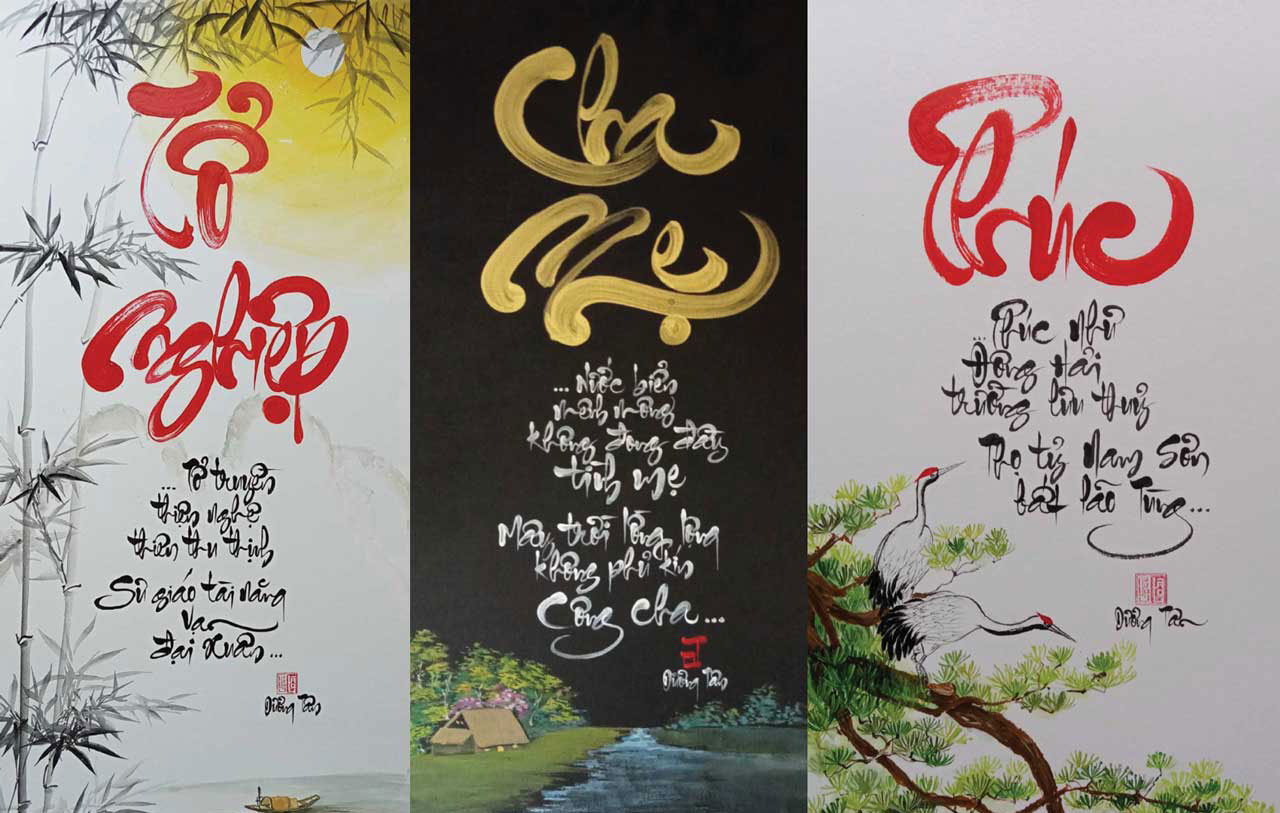 Tổ
Nghiệp
... Tổ truyền
thiên nghệ
thiên thu thịnh
Sư giáo tài năng
vạn
đại xuân...
Cha
Mẹ
... Nước biển
mênh mông
không đong đầy
tình mẹ
Mây trời lồng lộng
không phủ kín
Công cha...
Phúc
...Phúc như
Đông Hải
trường lưu thuỷ
Thọ tỷ Nam Sơn
bất lão Tùng...